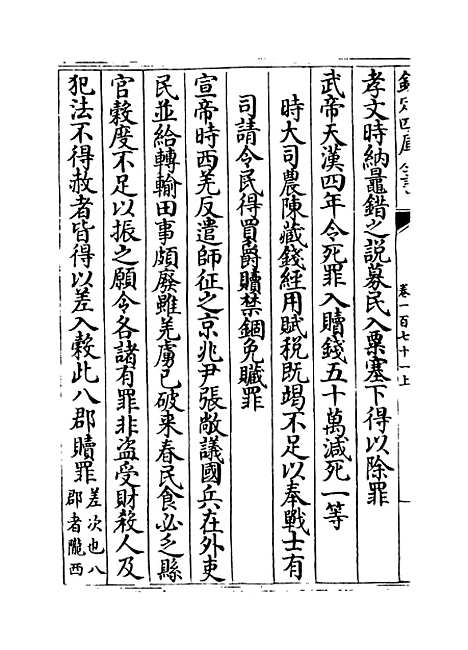 欽定四庫全書
卷一百七十一上
孝文時納鼂錯之説募民入粟塞下得以除罪
武帝天漢四年令死罪入贖錢五十萬減死一等
時大司農陳藏錢經用賦税既竭不足以奉戰士有
司請令民得買爵贖禁錮免臟罪
宣帝時西羌反遣師征之京兆尹張敞議國兵在外吏
民並給轉輸田事頗廢雖羌虜已破来春民食必乏縣
官糓度不足以振之願令各諸有罪非盗受財殺人及
犯法不得赦者皆得以差入糓此八郡贖罪差次也八
郡者隴西